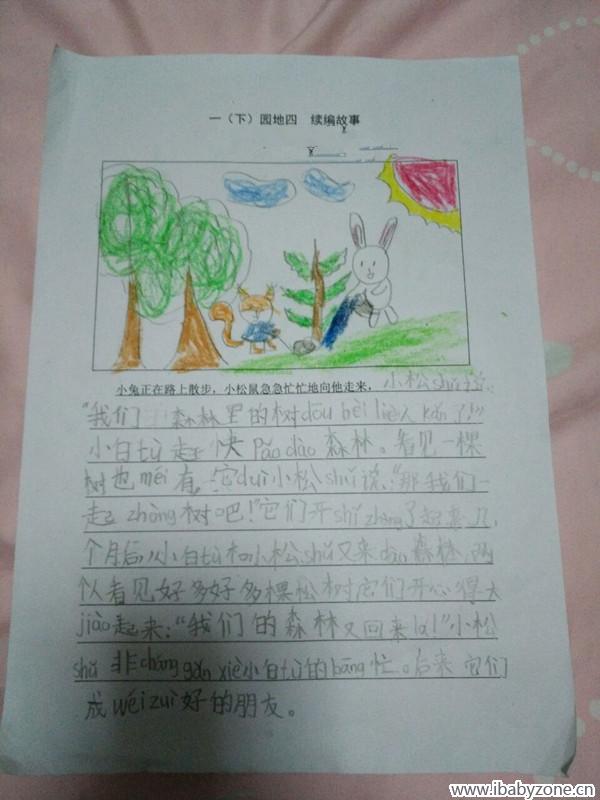 一（下）园地四　续编故事
小兔正在路上散步，小松鼠急急忙忙地向他走来，小松shǔ说：
“我们森林里的树dōu bèi liè人kǎn了！”
小白tù赶快Pǎo dào森林。看见一棵
树也méi有，它duì小松shǔ说：“那我们一
起zhòng树吧！”它们开shǐ zhòng了起来。几
个月后，小白tù和小松shǔ又来dào森林，两
个人看见好多好多棵松树它们开心得大
jiào起来：“我们的森林又回来la！”小松
shǔ非cháng gǎn xiè小白tù的bāng忙。后来它们
成wéi zuì好的朋友。
www.ibabyzone.cn